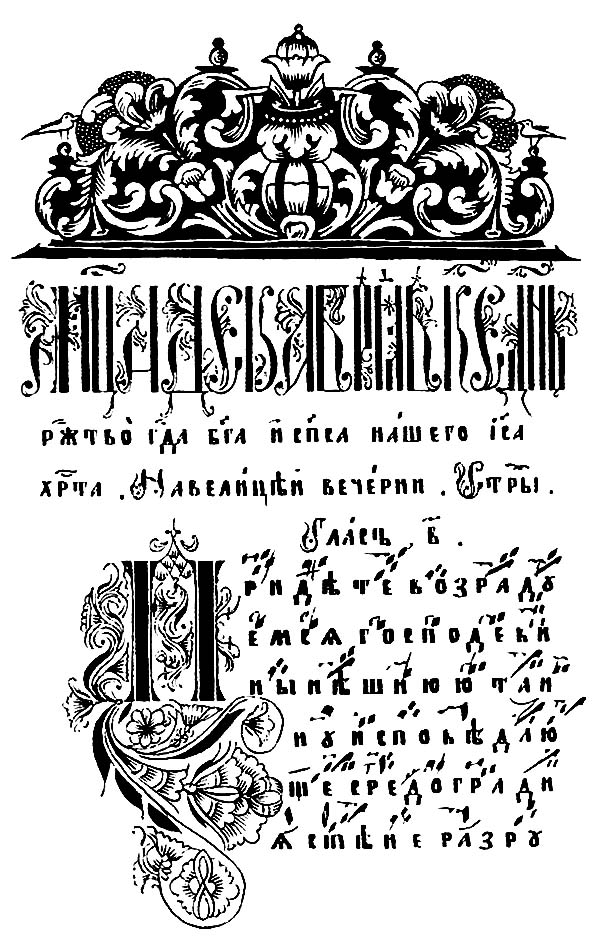 рж҃тво̀ гд҃а бг҃а и҆ сп҃са на́шего і҆с҃а
хр҃та . Навели́цѣй вече́рни . Стр҃ы .
Гла́съ . в҃ .
Придѣте возрадꙋ
емсѧ господеви
нынѣшнюю таи
нꙋ исповѣдаю
ще средогради
ѧ стѣние разрꙋ